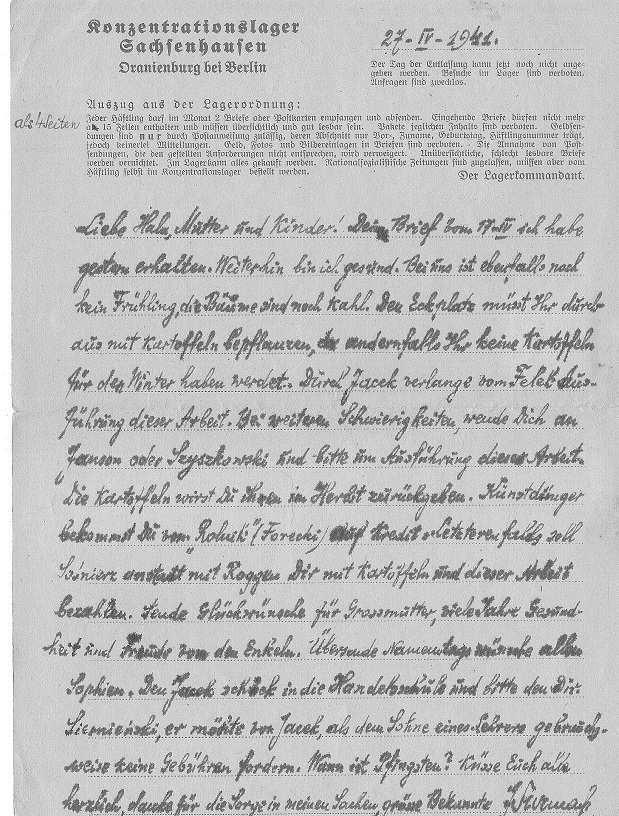 Konzentrationslager
Sachsenhausen
Oranienburg bei Berlin
27-IV-1941.
Der Tag der Entlassung kann jetzt noch nicht ange-
geben werden. Besuche im Lager sind verboten.
Anfragen sind zwecklos.
Auszug aus der Lagerordnung:
Jeder Häftling darf im Monat 2 Briefe oder Postkarten empfangen und absenden. Eingehende Briefe dürfen nicht mehr
als 4 Seiten
à 15 Zeilen enthalten und müssen übersichtlich und gut lesbar sein. Pakete jeglichen Inhalts sind verboten. Geldsen-
dungen sind nur durch Postanweisung zulässig, deren Abschnitt nur Vor-, Zuname, Geburtstag, Häftlingsnummer trägt,
jedoch keinerlei Mitteilungen. Geld, Fotos und Bildereinlagen in Briefen sind verboten. Die Annahme von Post-
sendungen, die den gestellten Anforderungen nicht entsprechen, wird verweigert. Unübersichtliche, schlecht lesbare Briefe
werden vernichtet. Im Lager kann alles gekauft werden. Nationalsozialistische Zeitungen sind zugelassen, müssen aber vom
Häftling selbst im Konzentrationslager bestellt werden.
Der Lagerkommandant.
Liebe Hala, Mutter und Kinder! Dein Brief vom 17-IV ich habe
gestern erhalten. Weiterhin bin ich gesund. Bei uns ist ebenfalls noch
kein Frühling, die Bäume sind noch kahl. Den Eckplatz müsst Ihr durch-
aus mit Kartoffeln bepflanzen, andernfalls Ihr keine Kartoffeln
für den Winter haben werdet. Durch Jacek verlange vom Felek Aus-
führung dieser Arbeit. Bei weiteren Schwierigkeiten, wende Dich an
Janson oder Szyszkowski und bitte um Ausführung dieser Arbeit.
Die Kartoffeln wirst Du ihnen im Herbst zurückgeben. Kunstdünger
bekommst Du vom "Rolnik" (Forecki) auf Kredit. Letzterenfalls soll
Sośnierz anstatt mit Roggen Dir mit Kartoffeln und dieser Arbeit
bezahlen. Sende Glückwünsche für Grossmutter, viele Jahre Gesund-
heit und Freude von den Enkeln. Übersende Namenstagswünsche allen
Sophien. Den Jacek schick in die Handelsschule und bitte den Dir.
Siernieński, er möchte von Jacek, als dem Sohne eines Lehrers gebrauchs-
weise keine Gebühren fordern. Wann ist Pfingsten? Küsse Euch alle
herzlich, danke für die Sorge in meinen Sachen, grüsse Bekannte